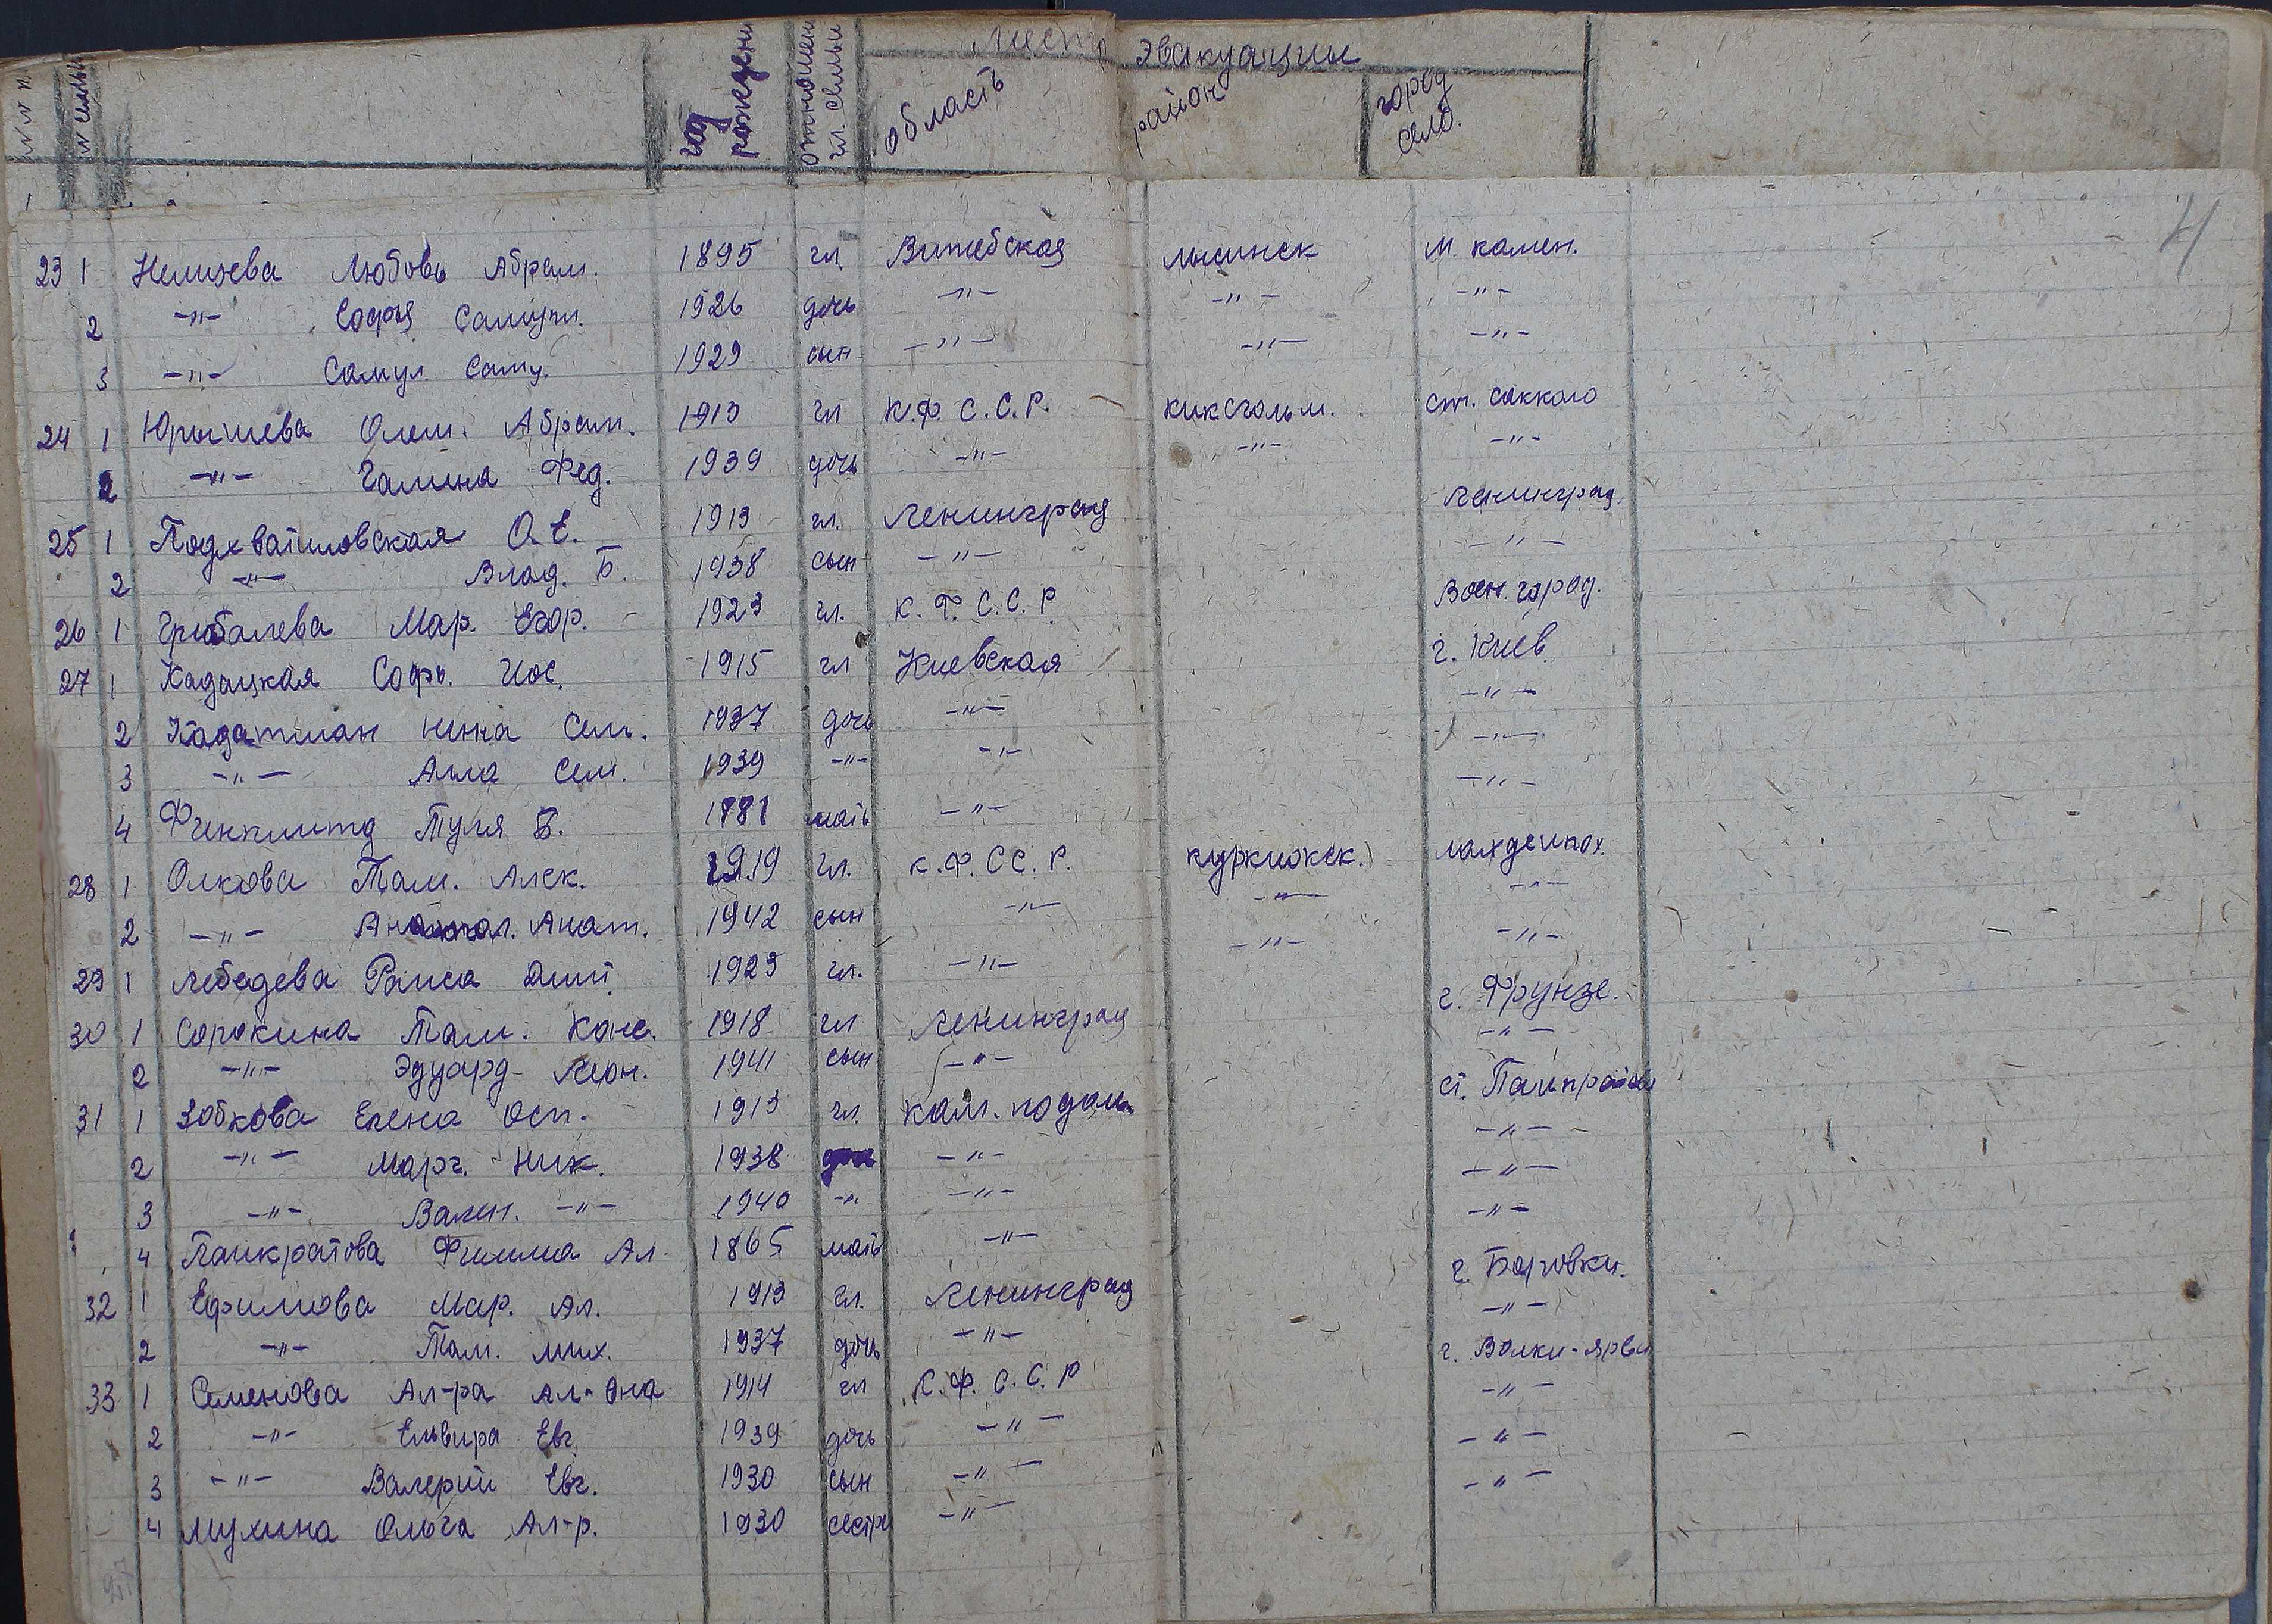 №№ п. № семьи год рождени отношен. гл. семьи место эвакуации
область район город село.
4
23 1 Немцева Любовь Абрам. 1895 гл. Витебская м. камен.
2 -"- Софья Самуил. 1926 дочь -"- -"- -"-
3 -"- Самул. Саму. 1929 сын -"- -"- -"-
24 1 Юрышева Олем. Абрам. 1913 гл К.Ф. С.С.Р. кексгольм. ст. саккало
2 -"- Галина Фед. 1939 дочь -"- -"- -"-
25 1 Подхватиловская О.Е. 1913 гл. Ленинград Ленинград
2 -"- Влад. Б. 1938 сын -"- -"-
26 1 Грибалева Мар. Егор. 1923 гл. К.Ф.С.С.Р. Воен. город.
27 1 Кадацкая Софь. Иос. 1915 гл Киевская г. Киев
2 Кадатман Нена Сем. 1937 дочь -"- -"-
3 -"- Алла Сем. 1939 -"- -"- -"-
4 Туля Б. 1881 мать -"- -"-
28 1 Олкова Там. Алек. 1919 гл. К.Ф.СС.Р. куркиокск. лахденпох.
2 -"- Анатол. Анат. 1942 сын -"- -"- -"-
29 1 Лебедева Раиса Дми. 1923 гл. -"- -"- -"-
30 1 Сорокина Там. Конс. 1918 гл Ленинград г. Фрунзе.
2 -"- Эдуард Леон. 1941 сын -"- -"-
31 1 Зобкова Елена Осп. 1913 гл. Кам. подоль ст.
2 -"- Марг. Ник. 1938 дочь -"- -"-
3 -"- Вален. -"- 1940 -"- -"- -"-
4 Панкратова Фимма Ал. 1865 мать -"- -"-
32 1 Ефимова Мар. Ал. 1913 гл. Ленинград г. Боровки.
2 -"- Там. мих. 1937 дочь -"- -"-
33 1 Семенова Ал-ра Ал-вна 1914 гл К.Ф.С.С.Р г. Валки-ярви
2 -"- Ельвира Евг. 1939 дочь -"- -"-
3 -"- Валерий Евг. 1930 сын -"- -"-
4 Мухина Ольга Ал-р. 1930 сестра -"- -"-